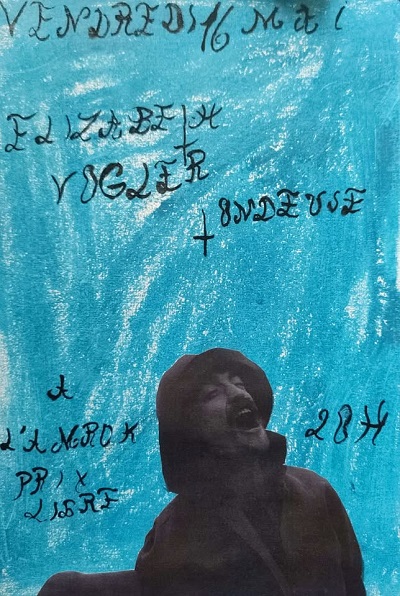 VENDREDI 16 MAI
ELIZABETH
VOGLER
TONDEUSE
A
L'AMROK
PRIX
LIBRE
20H